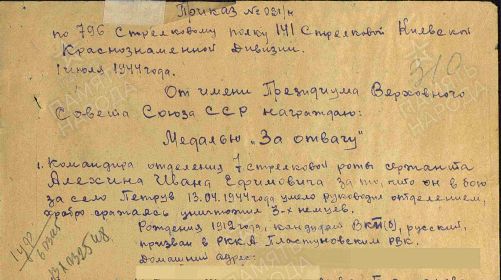 Приказ № 021/н
по 796 Стрелковому полку 141 Стрелковой Киевской
Краснознаменной Дивизии.
1 июля 1944 года.
310
От имени Президиума Верховного
Совета Союза ССР награждаю:
Медалью „За отвагу"
1. Командира отделения 7 стрелковой роты сержанта
Алехина Ивана Ефимовича за то, что он в бою
за село Петрув 13.04.1944 года умело руководил отделением,
храбро сражаясь уничтожил 3-х немцев.
Рождения 1912 года, кандидат ВКП(б), русский,
призван в РККА Пластуновским РВК.
Домашний адрес: